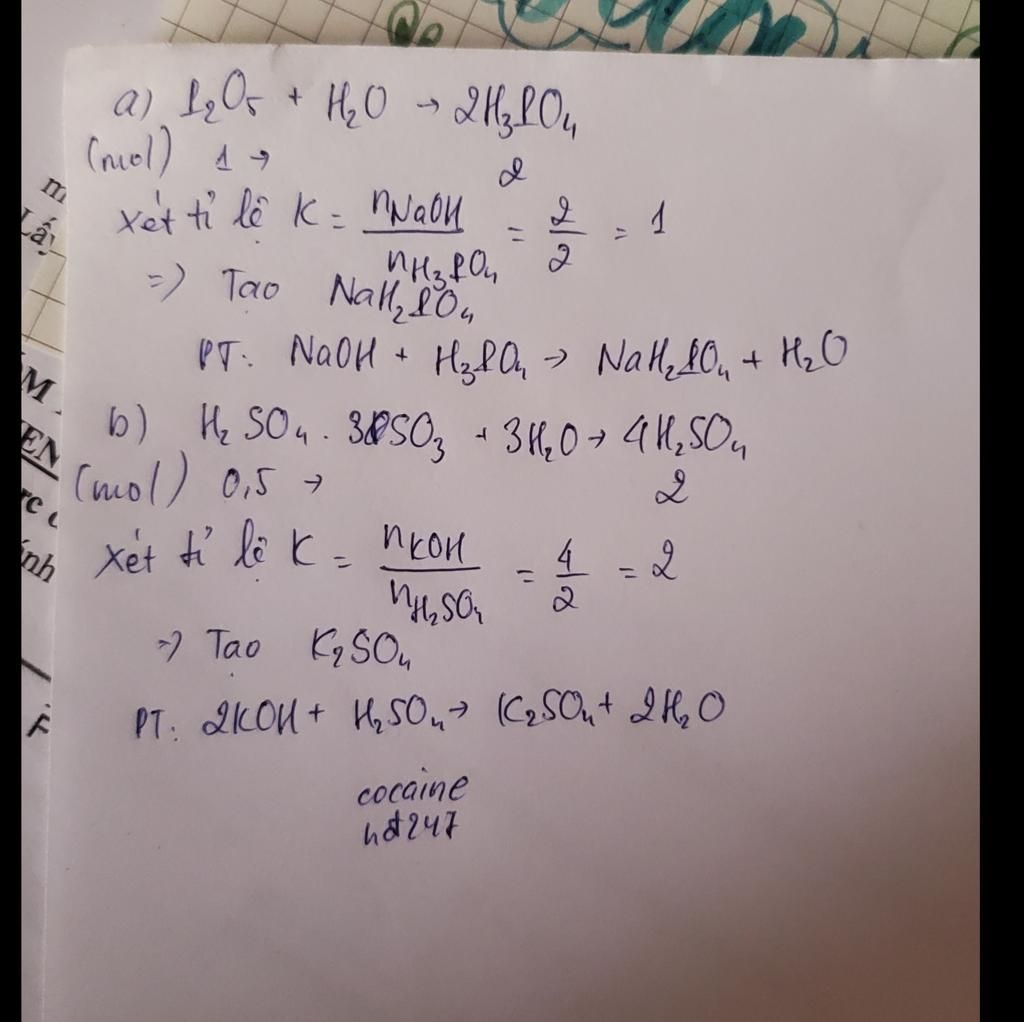 a) P₂O₅ + H₂O → 2H₃PO₄
(mol) 1 → 2
xét tỉ lệ K = nNaOH / nH₃PO₄ = 2/2 = 1
=> Tạo NaH₂PO₄
PT: NaOH + H₃PO₄ → NaH₂PO₄ + H₂O
b) H₂SO₄.3SO₃ + 3H₂O → 4H₂SO₄
(mol) 0,5 → 2
xét tỉ lệ K = nKOH / nH₂SO₄ = 4/2 = 2
=> Tạo K₂SO₄
PT: 2KOH + H₂SO₄ → K₂SO₄ + 2H₂O
cocaine